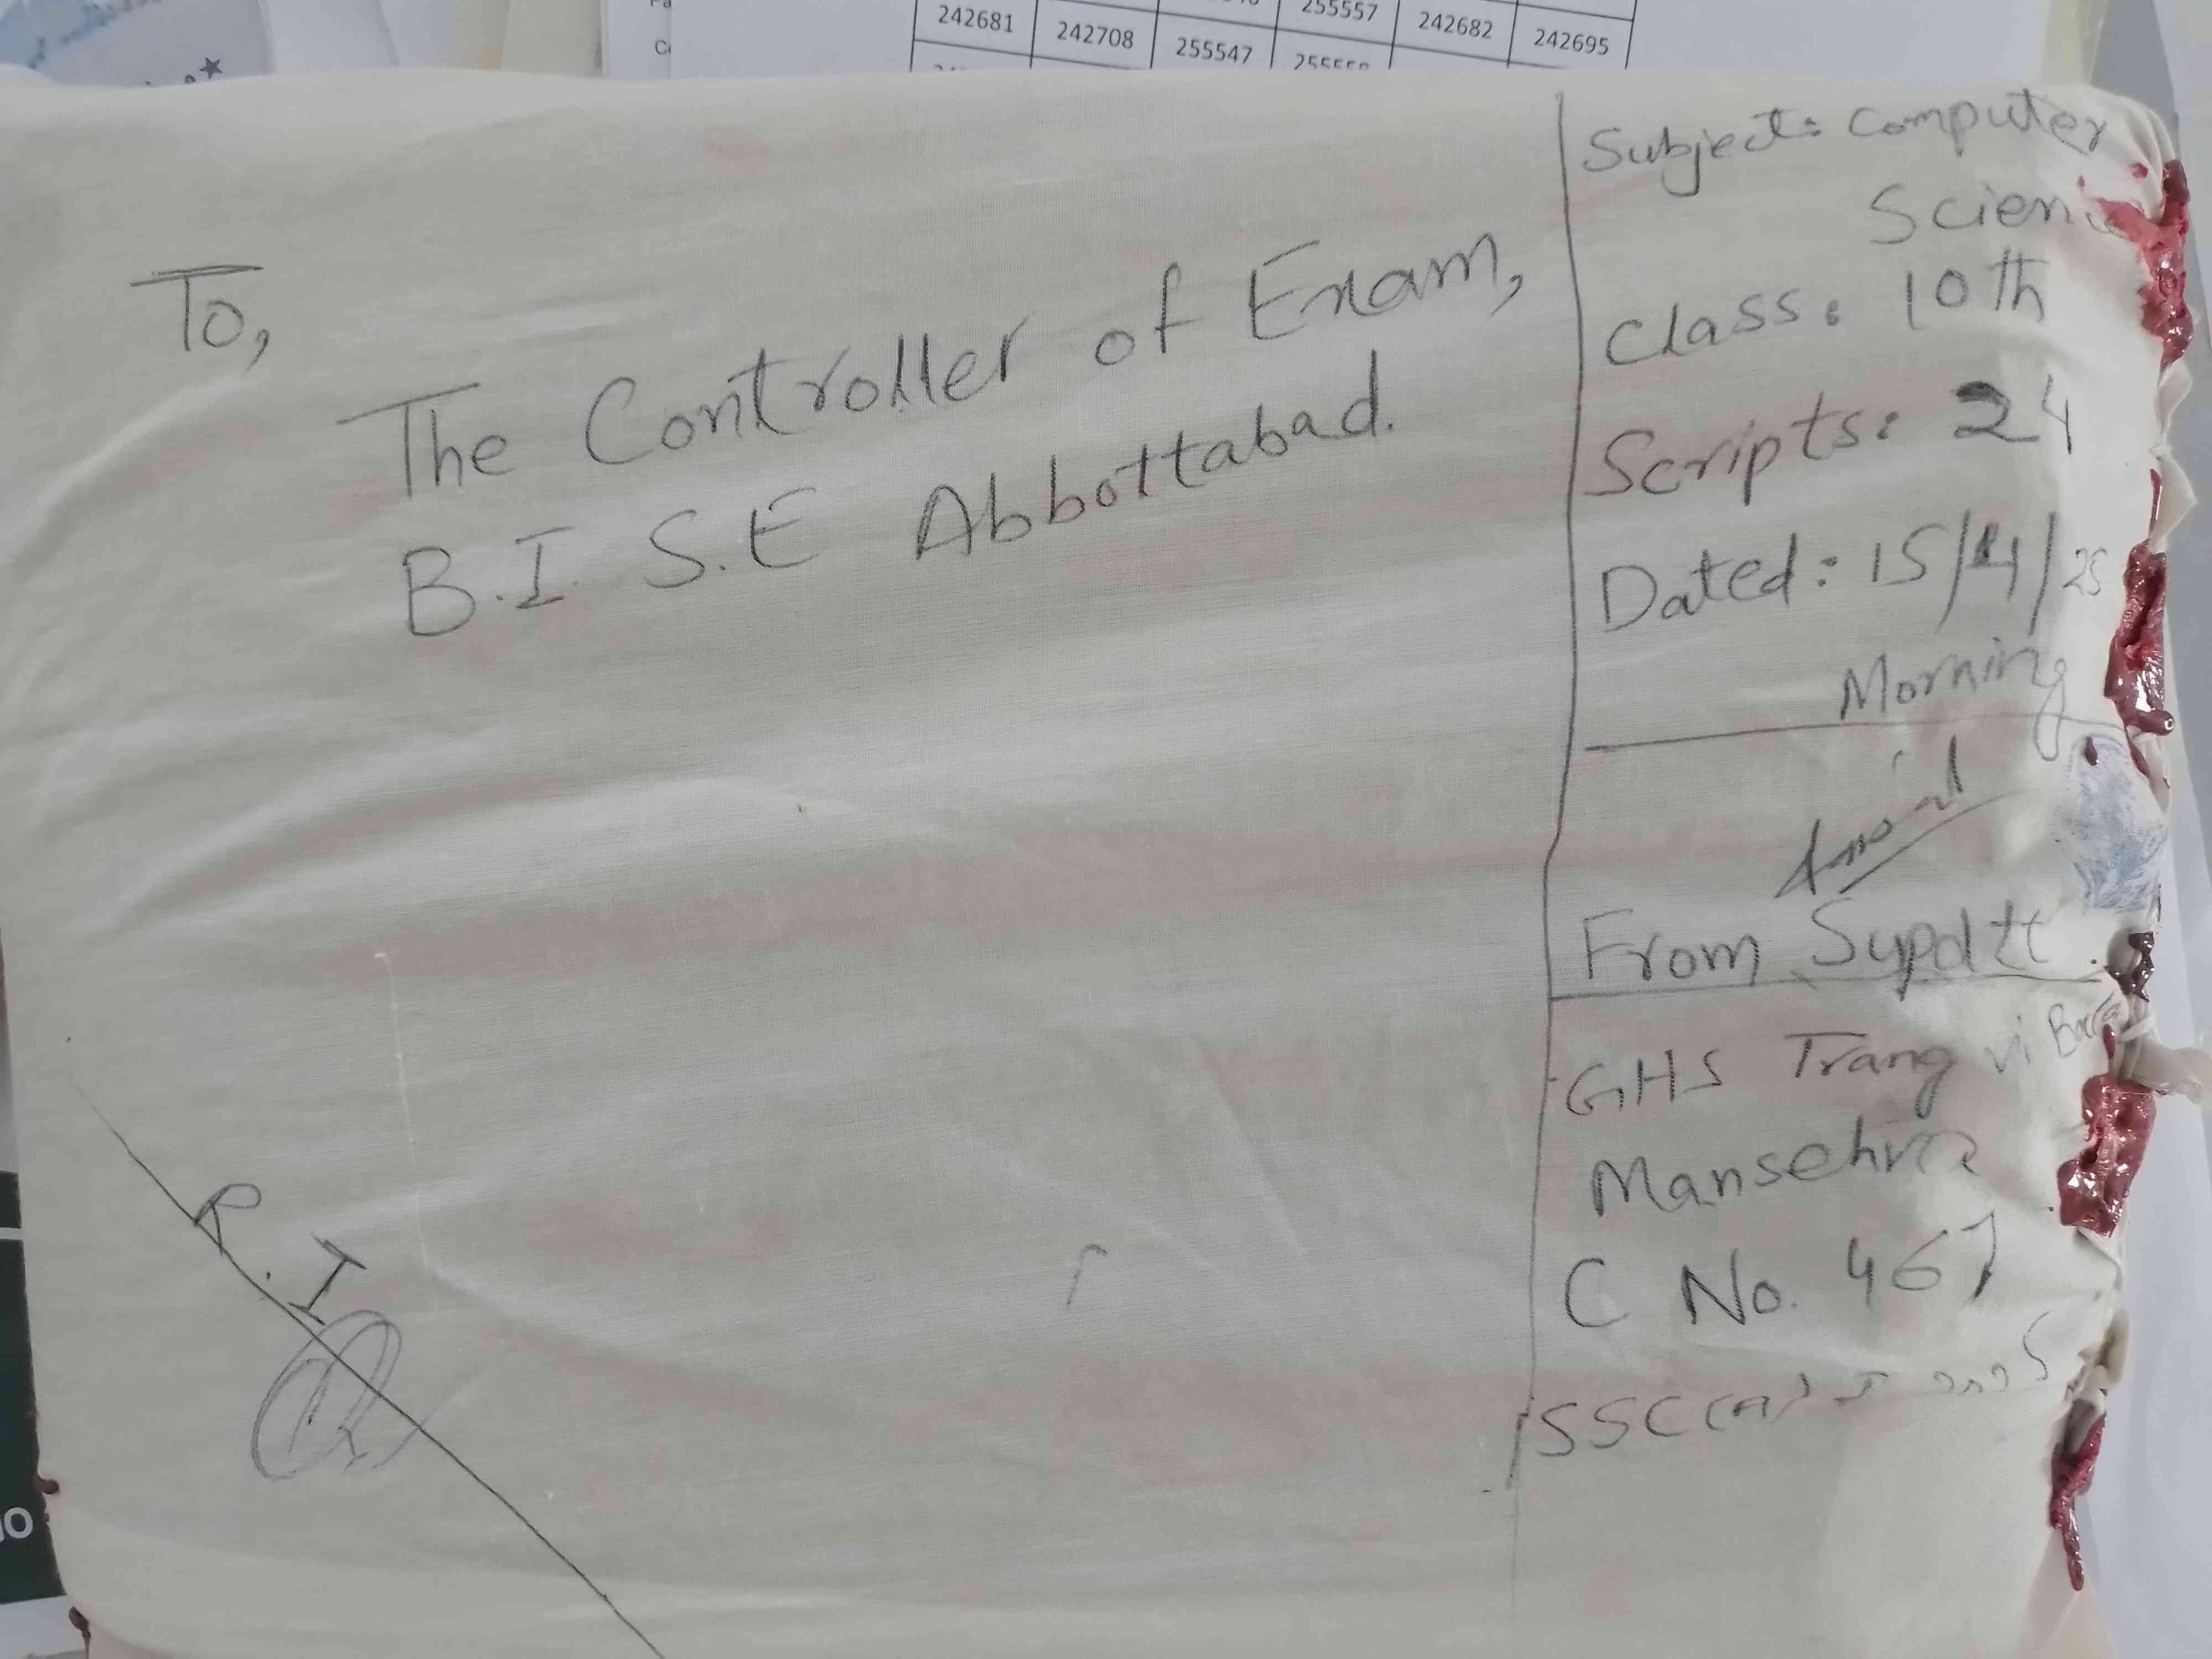 255557
242681 242708 255547 242682 242695
To,
The Controller of Exam,
B.I.S.E Abbottabad.
Subject: Computer
Scien
Class: 10th
Scripts: 24
Dated: 15/4/25
Morning
From Supdtt.
GHS Trang
Mansehra
C No. 467
SSC (A) I 2025
R.I